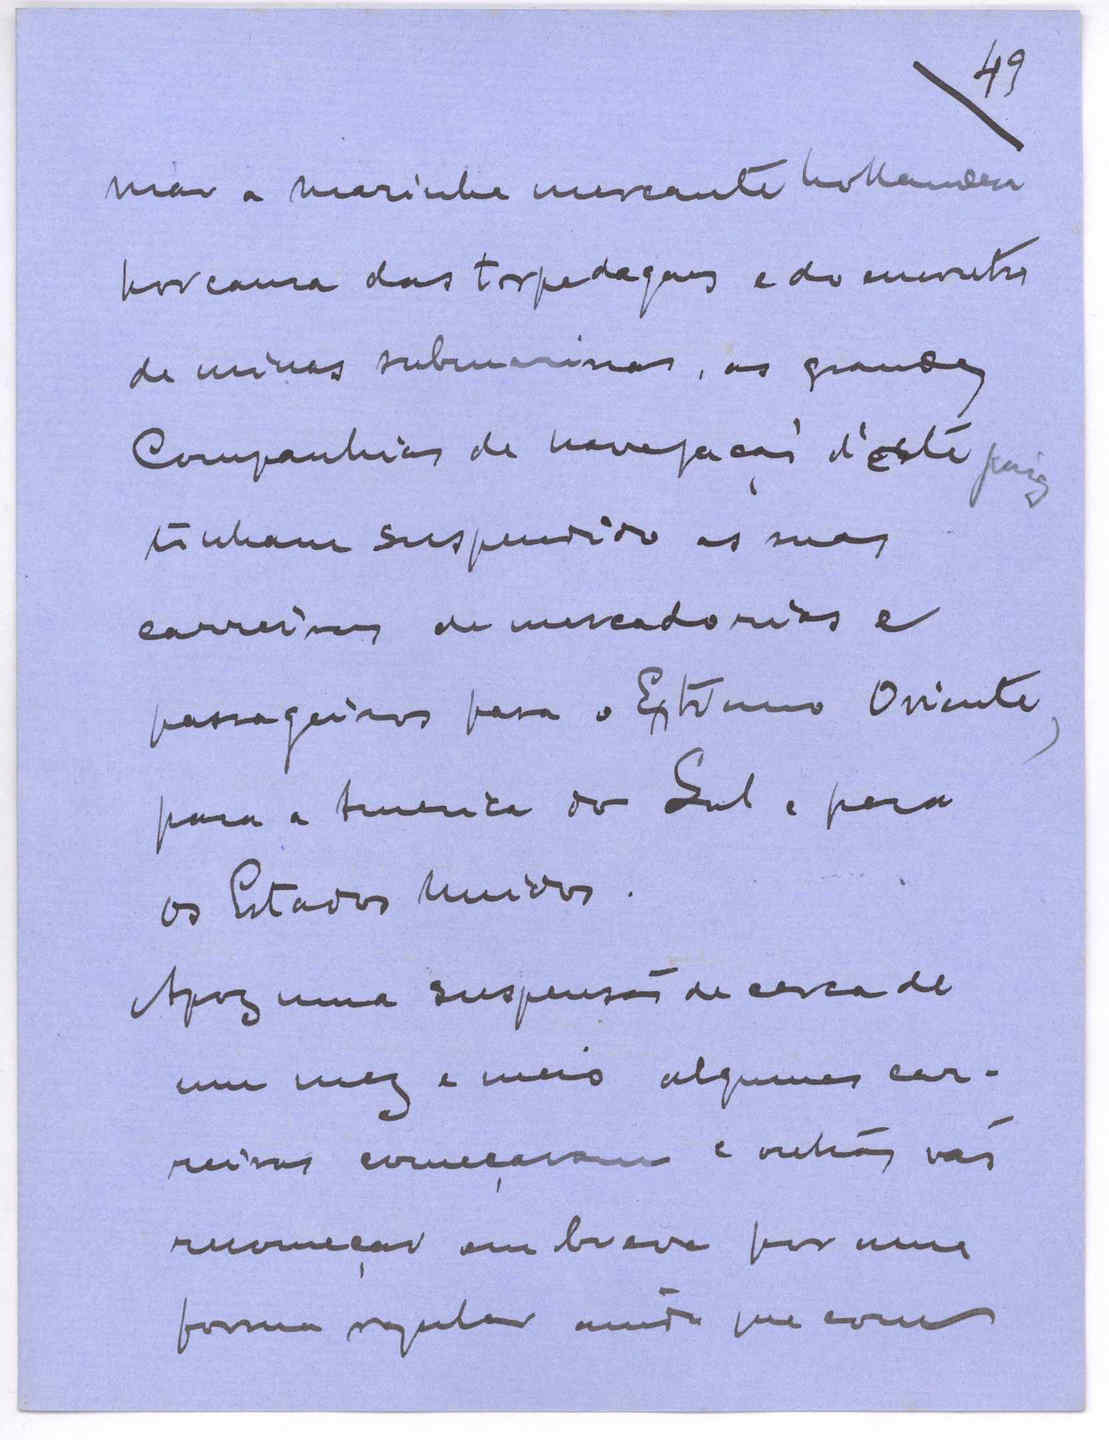 49
mar a marinha mercante hollandeza
por causa dos torpedagens e do encontro
de minas submarinas, as grandes
Companhias de navegação d'este paiz
tinham suspendido as suas
carreiras de mercadorias e
passageiros para o Extremo Oriente,
para a America do Sul e para
os Estados Unidos.
Apoz uma suspensão de cerca de
um mez e meio algumas car-
reiras começaram e outras vão
recomeçar em breve por uma
forma regular ainda que com